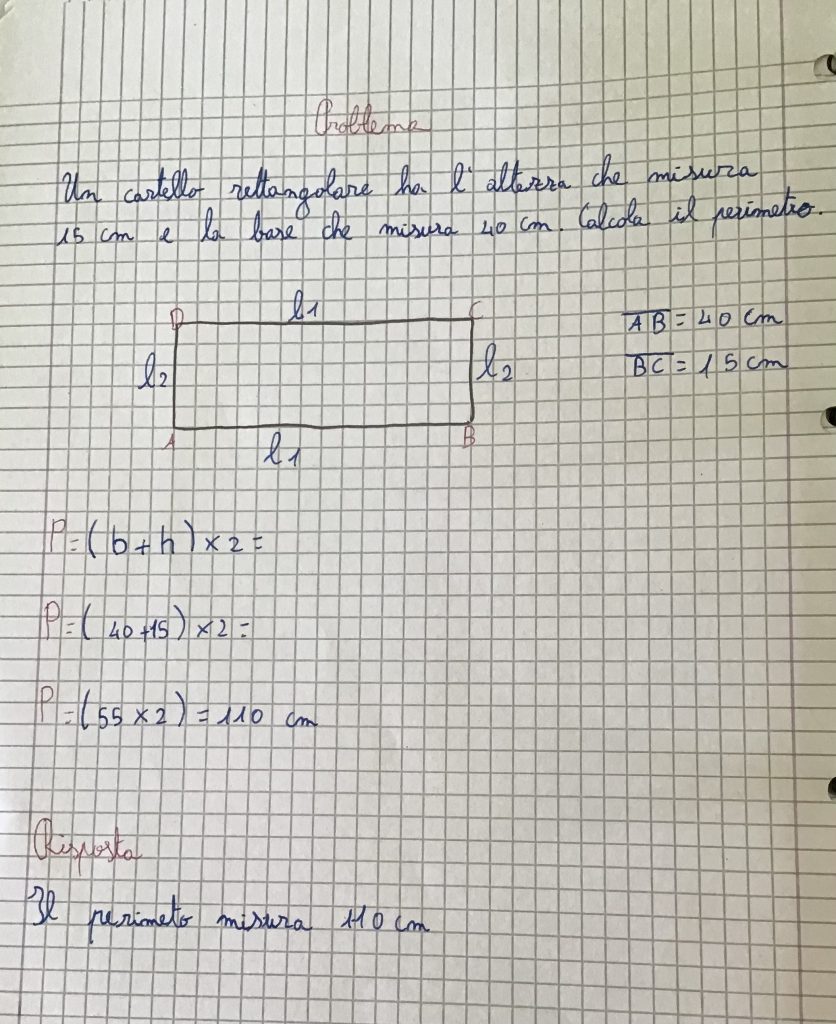 Problema
Un cartello rettangolare ha l'altezza che misura
15 cm e la base che misura 40 cm. Calcola il perimetro.
D l1 C
AB = 40 cm
l2 l2
BC = 15 cm
A l1 B
P=(b+h)×2=
P=(40+15)×2=
P=(55×2)=110 cm
Risposta
Il perimeto misura 110 cm